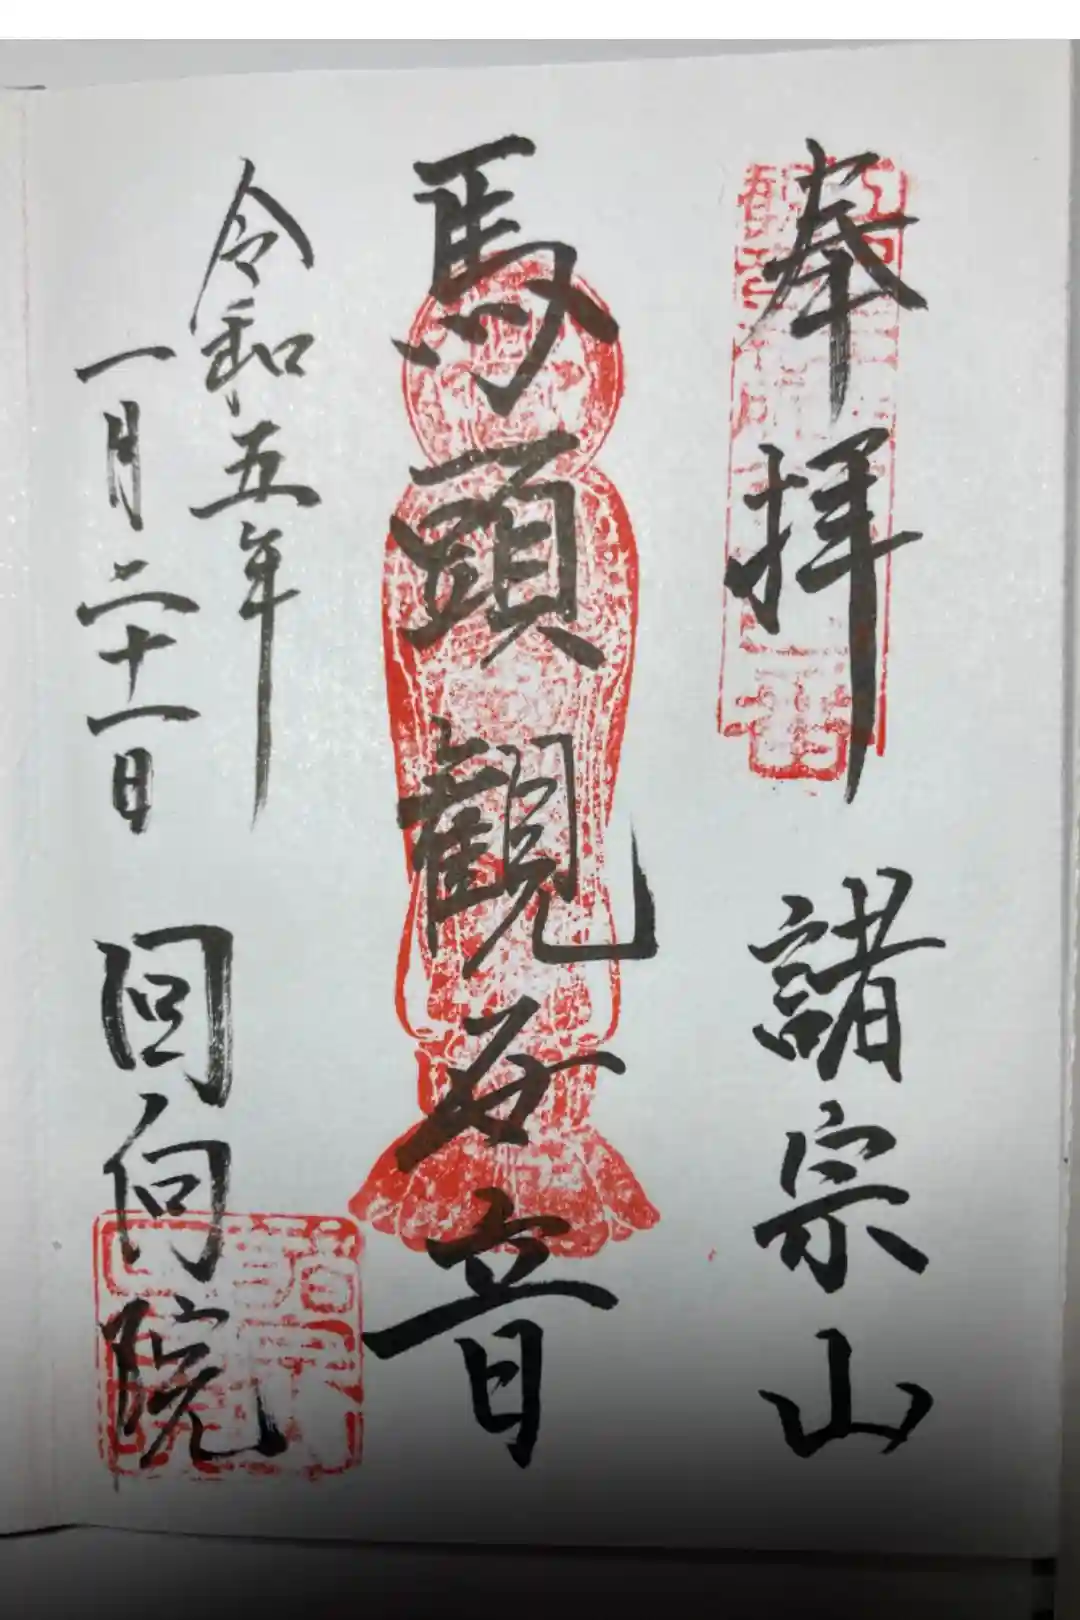 奉拝 諸宗山
馬頭観世音
令和五年
一月二十一日
回向院